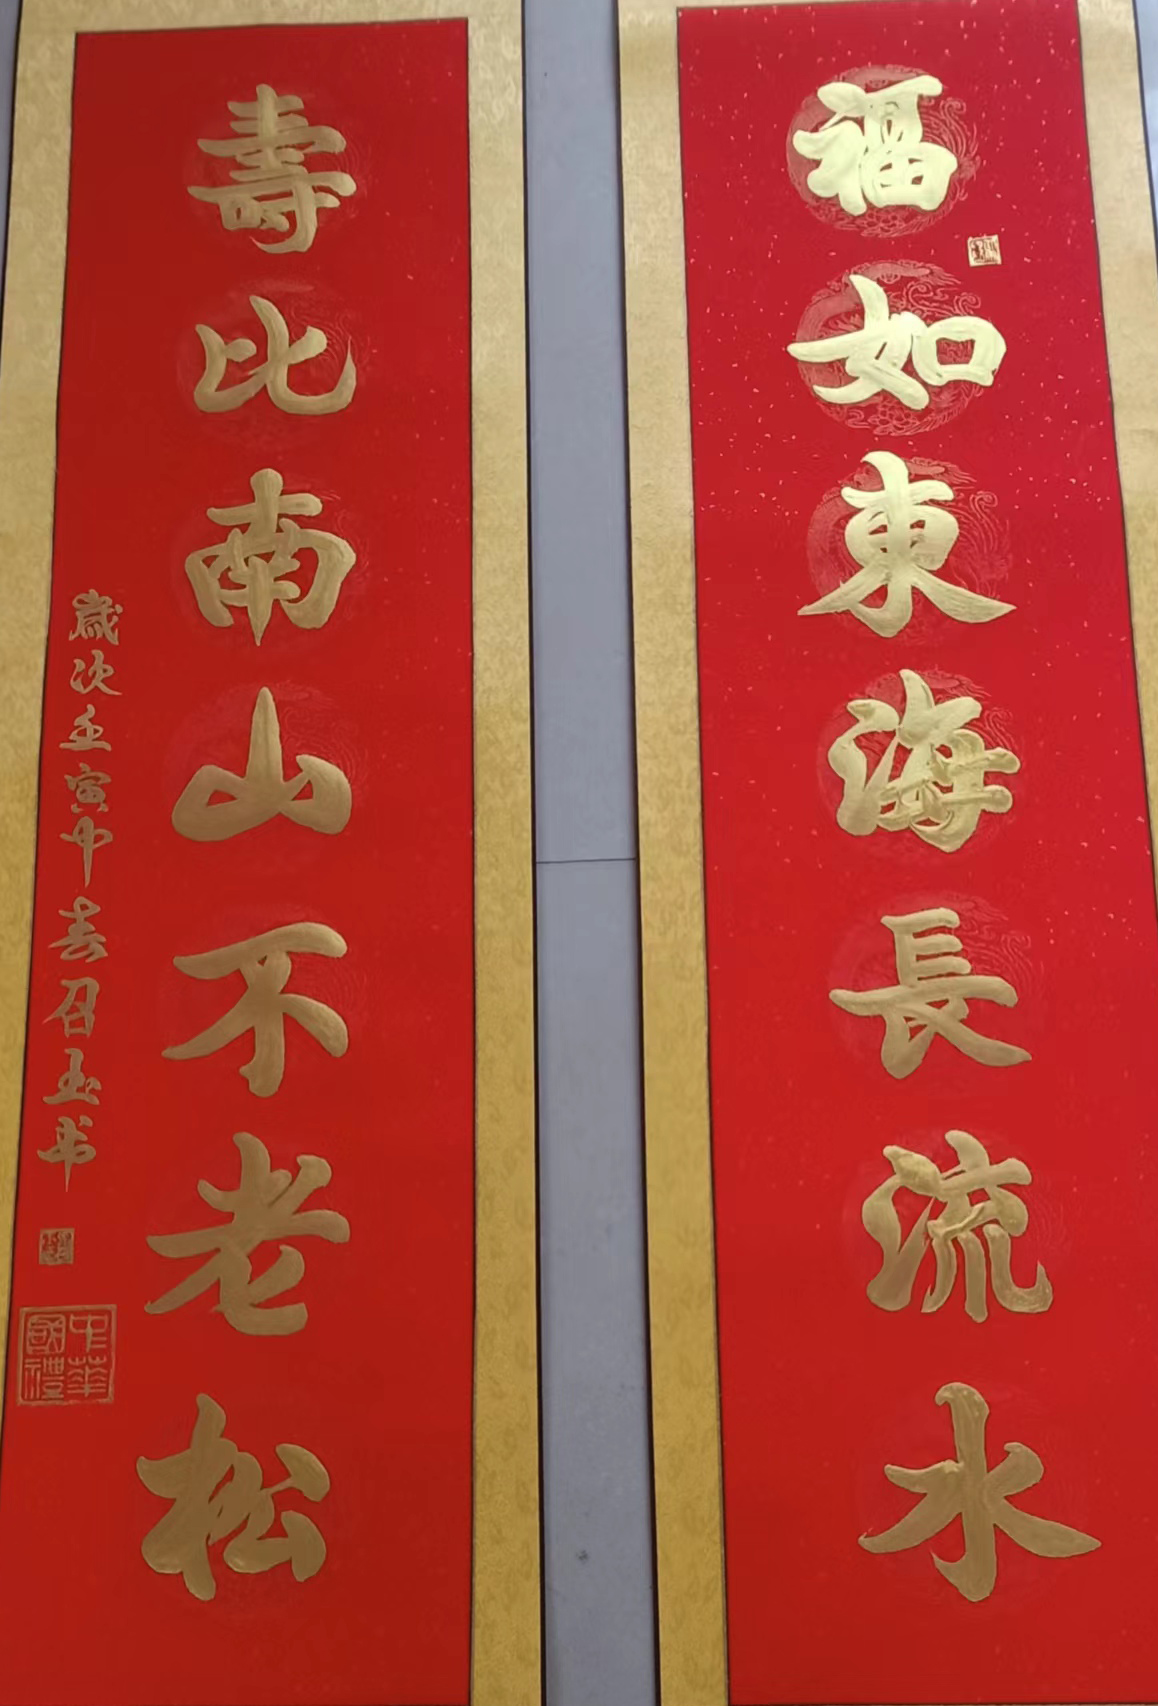 福如東海長流水
壽比南山不老松
歲次壬寅中春召玉书
中華國禮